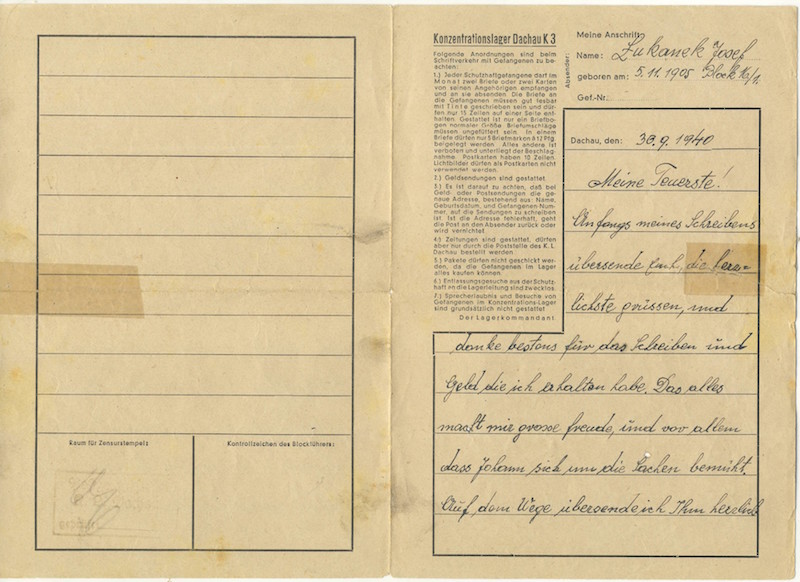 Raum für Zensurstempel:
Kontrollzeichen des Blockführers:
Konzentrationslager Dachau K 3
Folgende Anordnungen sind beim
Schriftverkehr mit Gefangenen zu be-
achten:
1.) Jeder Schutzhaftgefangene darf im
Monat zwei Briefe oder zwei Karten
von seinen Angehörigen empfangen
und an sie absenden. Die Briefe an
die Gefangenen müssen gut lesbar
mit Tinte geschrieben sein und dür-
fen nur 15 Zeilen auf einer Seite ent-
halten. Gestattet ist nur ein Briefbo-
gen normaler Größe. Briefumschläge
müssen ungefüttert sein. In einem
Briefe dürfen nur 5 Briefmarken à 12 Pfg.
beigelegt werden. Alles andere ist
verboten und unterliegt der Beschlag-
nahme. Postkarten haben 10 Zeilen.
Lichtbilder dürfen als Postkarten nicht
verwendet werden.
2.) Geldsendungen sind gestattet.
3.) Es ist darauf zu achten, daß bei
Geld- oder Postsendungen die ge-
naue Adresse, bestehend aus: Name,
Geburtsdatum, und Gefangenen-Num-
mer, auf die Sendungen zu schreiben
ist. Ist die Adresse fehlerhaft, geht
die Post an den Absender zurück oder
wird vernichtet.
4.) Zeitungen sind gestattet, dürfen
aber nur durch die Poststelle des K. L.
Dachau bestellt werden.
5.) Pakete dürfen nicht geschickt wer-
den, da die Gefangenen im Lager
alles kaufen können.
6.) Entlassungsgesuche aus der Schutz-
haft an die Lagerleitung sind zwecklos.
7.) Sprecherlaubnis und Besuche von
Gefangenen im Konzentrations-Lager
sind grundsätzlich nicht gestattet.
Der Lagerkommandant
Absender:
Meine Anschrift:
Name: Žukanek Josef
geboren am: 5. 11. 1905 Block
Gef.-Nr.
Dachau, den: 30. 9. 1940
Meine Teuerste!
Anfangs meines Schreibens
übersende Euch, die herz-
lichste grüssen, und
danke bestens für das Schreiben und
Geld die ich erhalten habe. Das alles
macht mir grosse freude, und vor allem
dass Johann sich um die Sachen bemüht.
Auf dem Wege übersende ich Ihm herzlich